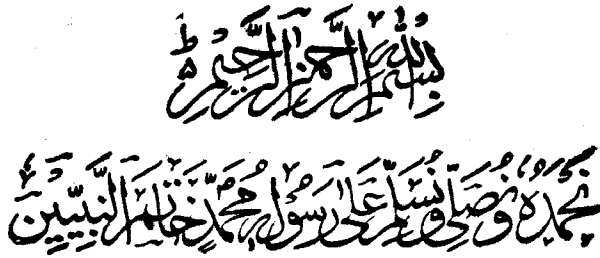 بِسْمِ اللّٰهِ الرَّحْمٰنِ الرَّحِیْمِ ط
نَحْمَدُہٗ وَ نُصَلِّیْ وَ نُسَلِّمُ عَلٰی رَسُوْلِهٖ مُحَمَّدٍ خَاتَمِ النَّبِیِّیْنَ